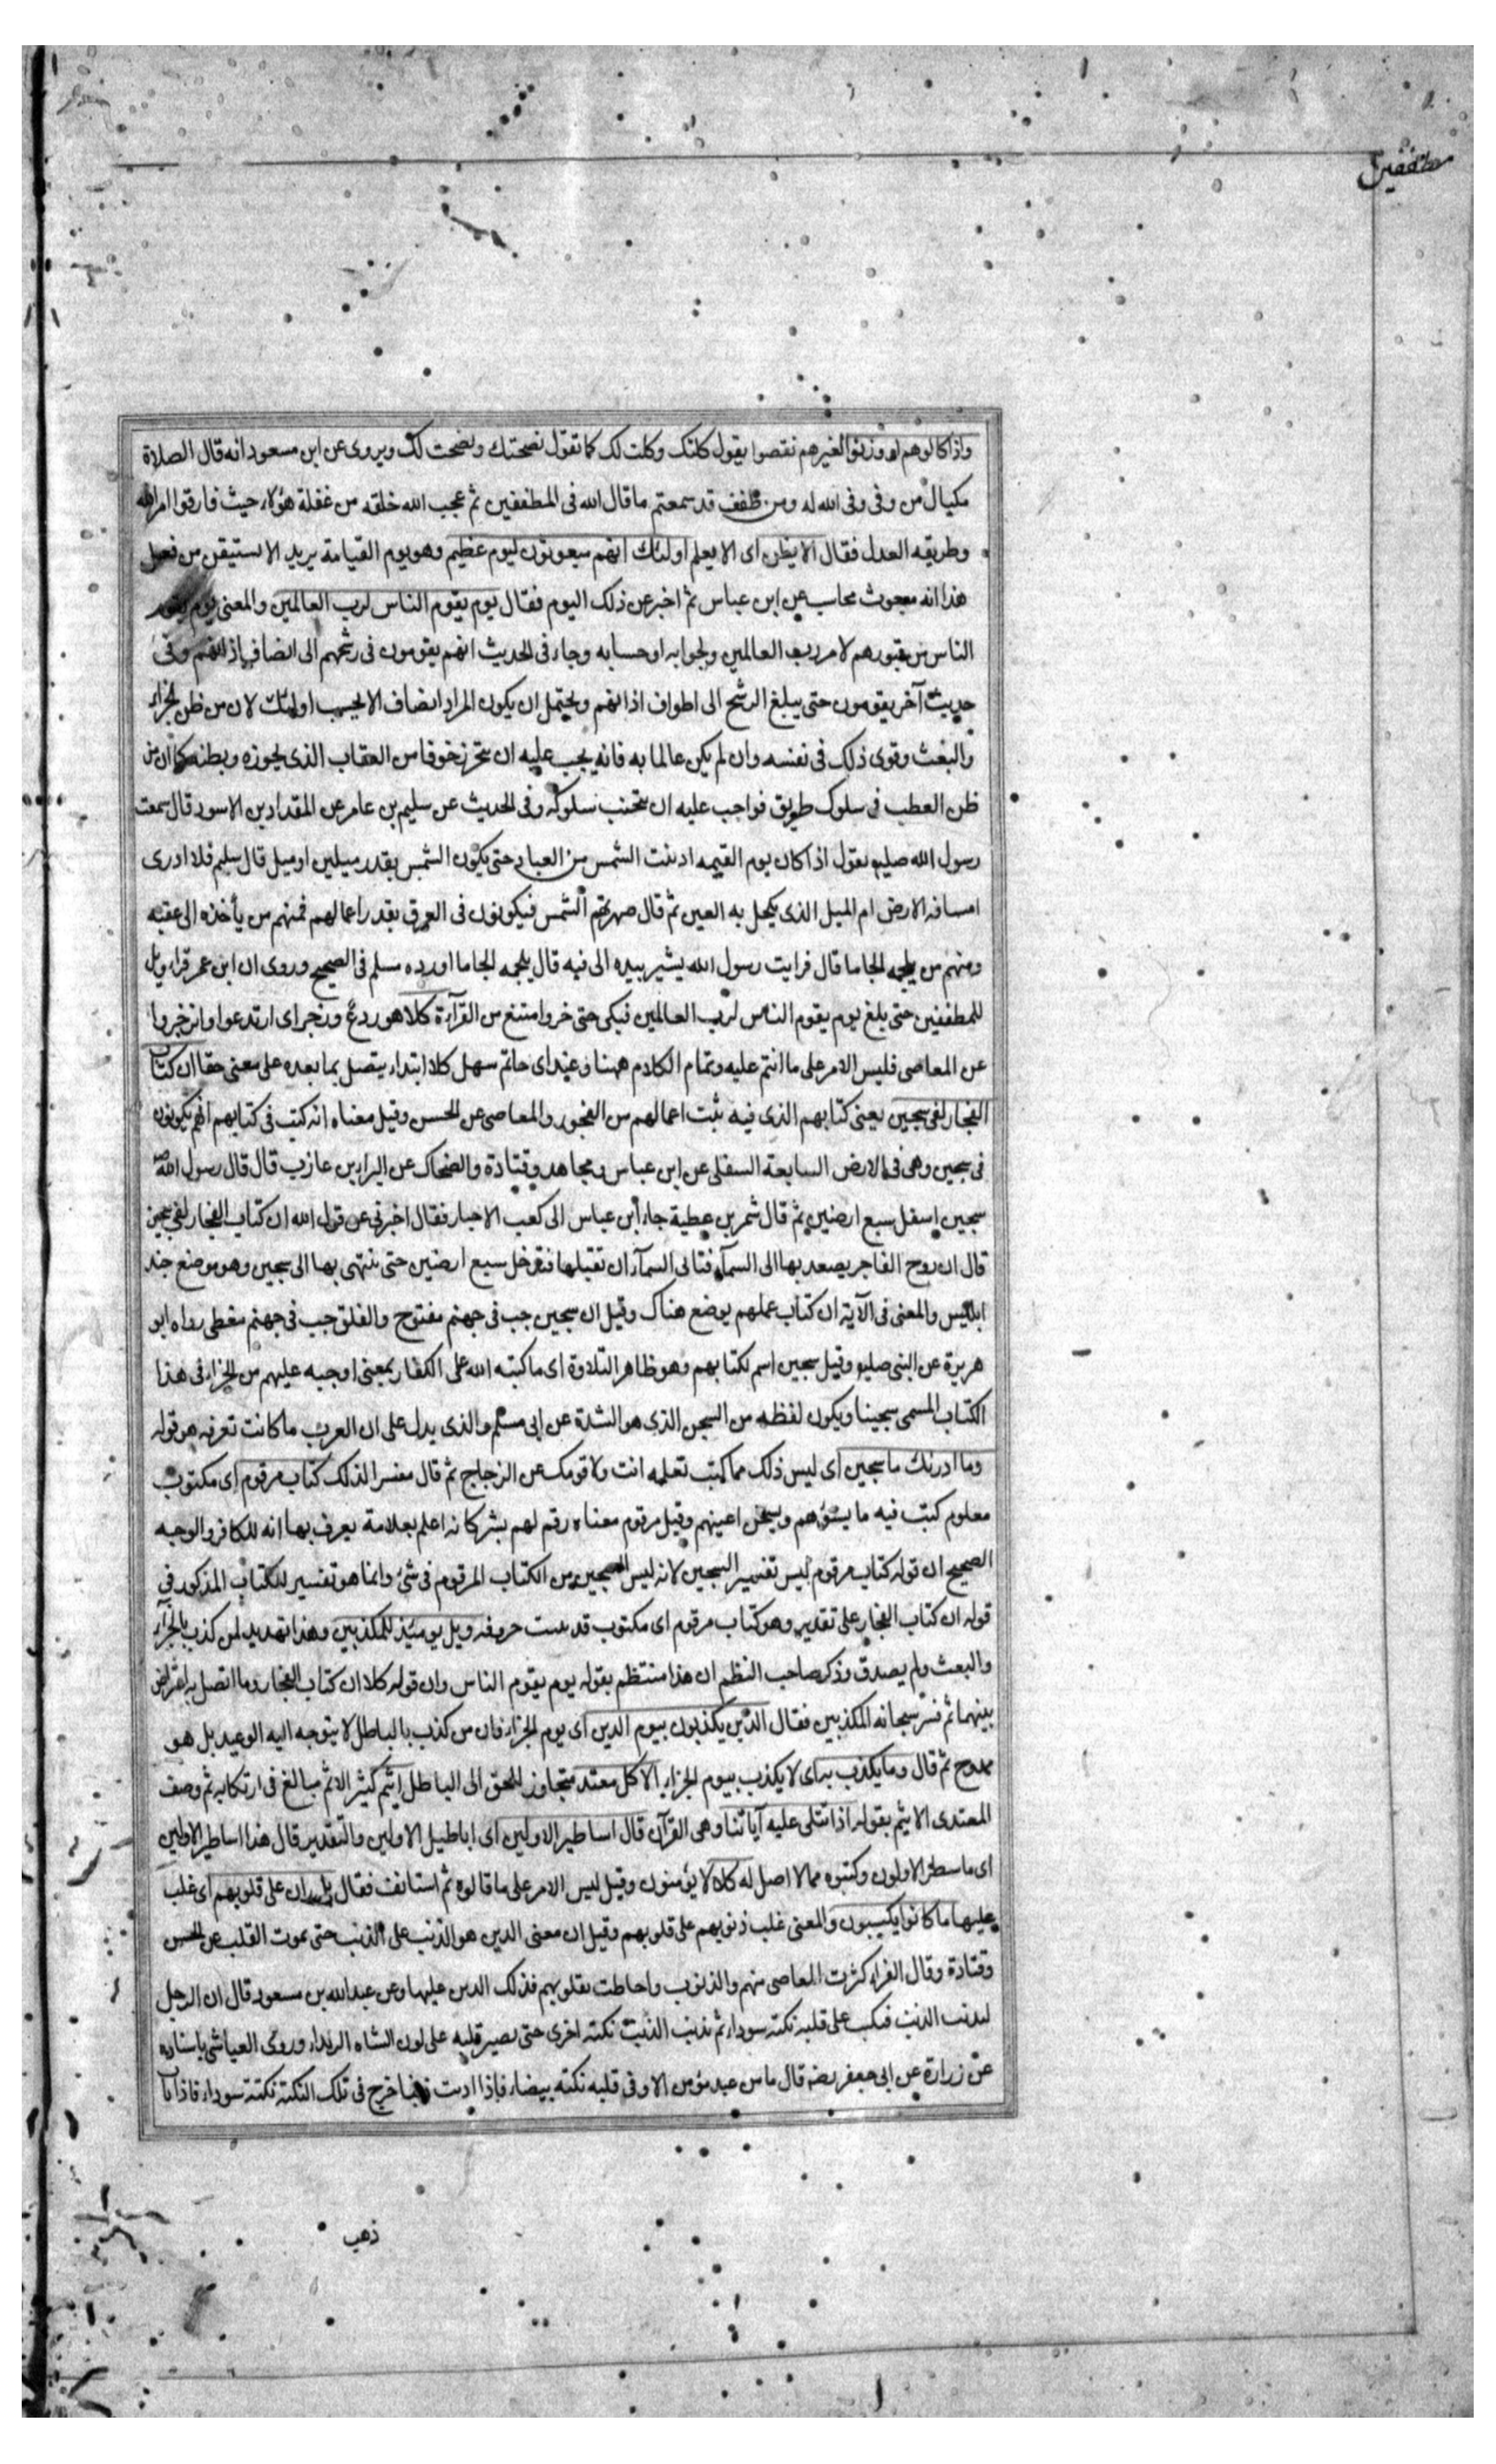 مطففين
واذا كالوهم او وزنوا لغيرهم نقصوا يقول كلتك وكلت لك كما تقول نصحتك ونصحت لك ويروى عن ابن مسعود انه قال الصلاة
مكيال من وفى وفى الله له ومن طفف قد سمعتم ما قال الله فى المطففين ثم عجب الله خلقه من غفلة هؤلاء حيث فارقوا امر الله
وطريقه العدل فقال الا يظن اى الا يعلم اولئك انهم مبعوثون ليوم عظيم وهو يوم القيامة يريد الا يستيقن من فعل
هذا انه مبعوث محاسب عن ابن عباس ثم اخبر عن ذلك اليوم فقال يوم يقوم الناس لرب العالمين والمعنى يوم يقوم
الناس من قبورهم لامر رب العالمين ولجوابه او حسابه وجاء فى الحديث انهم يقومون فى رشحهم الى انصاف اذانهم وفى
حديث آخر يقومون حتى يبلغ الرشح الى اطواف اذانهم ويحتمل ان يكون المراد انصاف الا يحسب اولئك لان من ظن الجزاء
والبعث وقوى ذلك فى نفسه وان لم يكن عالما به فانه يجب عليه ان يتحرز خوفا من العقاب الذى يجوزه ويظنه كما ان من
ظن العطب فى سلوك طريق فواجب عليه ان يتجنب سلوكه وفى الحديث عن سليم بن عامر عن المقداد بن الاسود قال سمعت
رسول الله صليم يقول اذا كان يوم القيمه ادنيت الشمس من العباد حتى يكون الشمس بقدر ميلين او ميل قال سليم فلا ادرى
امسافه الارض ام الميل الذى يكحل به العين ثم قال صهرتهم الشمس فيكونون فى العرق بقدر اعمالهم فمنهم من يأخذه الى عقبه
ومنهم من يلجمه الجاما قال فرايت رسول الله يشير بيده الى فيه قال يلجمه الجاما اورده مسلم فى الصحيح وروى ان ابن عمر قراء ويل
للمطففين حتى بلغ يوم يقوم الناس لرب العالمين فبكى حتى خر وامتنع من القرآءة كلا هو ردع وزجر اى ارتدعوا وانزجروا
عن المعاصى فليس الامر على ما انتم عليه وتمام الكلام ههنا وعند ابى حاتم سهل كلا ابتداء يتصل بما بعده على معنى حقا ان كتاب
الفجار لفى سجين يعنى كتابهم الذى فيه ثبت اعمالهم من الفجور والمعاصى عن الحسن وقيل معناه انه كتب فى كتابهم انهم يكونون
فى سجين وهى فى الارض السابعة السفلى عن ابن عباس ومجاهد وقتادة والضحاك عن البراء بن عازب قال قال رسول الله
سجين اسفل سبع ارضين ثم قال شمر بن عطية جاء ابن عباس الى كعب الاحبار فقال اخبرنى عن قول الله ان كتاب الفجار لفى سجين
قال ان روح الفاجر يصعد بها الى السمآء فتابى السمآء ان تقبلها فتدخل سبع ارضين حتى ننتهى بها الى سجين وهو موضع جند
ابليس والمعنى فى الآية ان كتاب عملهم يوضع هناك وقيل ان سجين جب فى جهنم مفتوح والفلق جب فى جهنم مغطى رواه ابو
هريرة عن النبى صليم وقيل سجين اسم لكتابهم وهو ظاهر التلاوة اى ما كتبه الله على الكفار بمعنى اوجبه عليهم من الجزاء فى هذا
الكتاب المسمى سجينا ويكون لفظه من السجن الذى هو الشدة عن ابى مسلم والذى يدل على ان العرب ما كانت تعرفه هو قوله
وما ادرنك ما سجين اى ليس ذلك مما كتب تعلمه انت ولا قومك عن الزجاج ثم قال مفسرا لذلك كتاب مرقوم اى مكتوب
معلوم كتبت فيه ما يسؤهم ويسخن اعينهم وقيل مرقوم معناه رقم لهم بشر كانه اعلم بعلامة يعرف بها انه للكافر والوجيه
الصحيح ان قوله كتاب مرقوم ليس تفسير السجين لانه ليس السجين من الكتاب المرقوم فى شئ وانما هو تفسير للكتاب المذكور فى
قوله ان كتاب الفجار على تقدير وهو كتاب مرقوم اى مكتوب قد بينت حروفه ويل يومئذ للمكذبين وهذا تهديد لمن كذب بالجزآء
والبعث ولم يصدق وذكر صاحب النظم ان هذا منتظم بقوله يوم يقوم الناس وان قوله كلا ان كتاب الفجار وما اتصل به اعتراض
بينهما ثم فسر سبحانه المكذبين فقال الذين يكذبون بيوم الدين اى يوم الجزاء فان من كذب بالباطل لا يتوجه اليه الوعيد بل هو
ممدوح ثم قال وما يكذب به اى لا يكذب بيوم الجزاء الا كل معتد متجاوز للحق الى الباطل اثيم كثير الاثم مبالغ فى ارتكابه ثم وصف
المعتدى الاثيم بقوله اذا تتلى عليه آياتنا وهى القرآن قال اساطير الاولين اى اباطيل الاولين والتقدير قال هذا اساطير الاولين
اى ما سطره الاولون وكتبوه مما لا اصل له كلا لا يؤمنون وقيل ليس الامر على ما قالوه ثم استانف فقال بل ران على قلوبهم اى غلب
عليها ما كانوا يكسبون والمعنى غلب ذنوبهم على قلوبهم وقيل ان معنى الرين هو الذنب على الذنب حتى يموت القلب عن الحسن
وقتادة وقال الفراء كثرت المعاصى منهم والذنوب واحاطت بقلوبهم فذلك الرين عليها وعن عبد الله بن مسعود قال ان الرجل
ليذنب الذنب فنكت على قلبه نكته سوداء ثم يذنب الذنب نكته اخرى حتى يصير قلبه على لون الشاه الربداء وروى العياشى باسناده
عن زرارة عن ابى جعفر رضه قال ما من عبد مؤمن الا وفى قلبه نكته بيضاء فاذا اذنب ذنبا خرج فى تلك النكتة نكتة سوداء فاذا تاب
ذهب